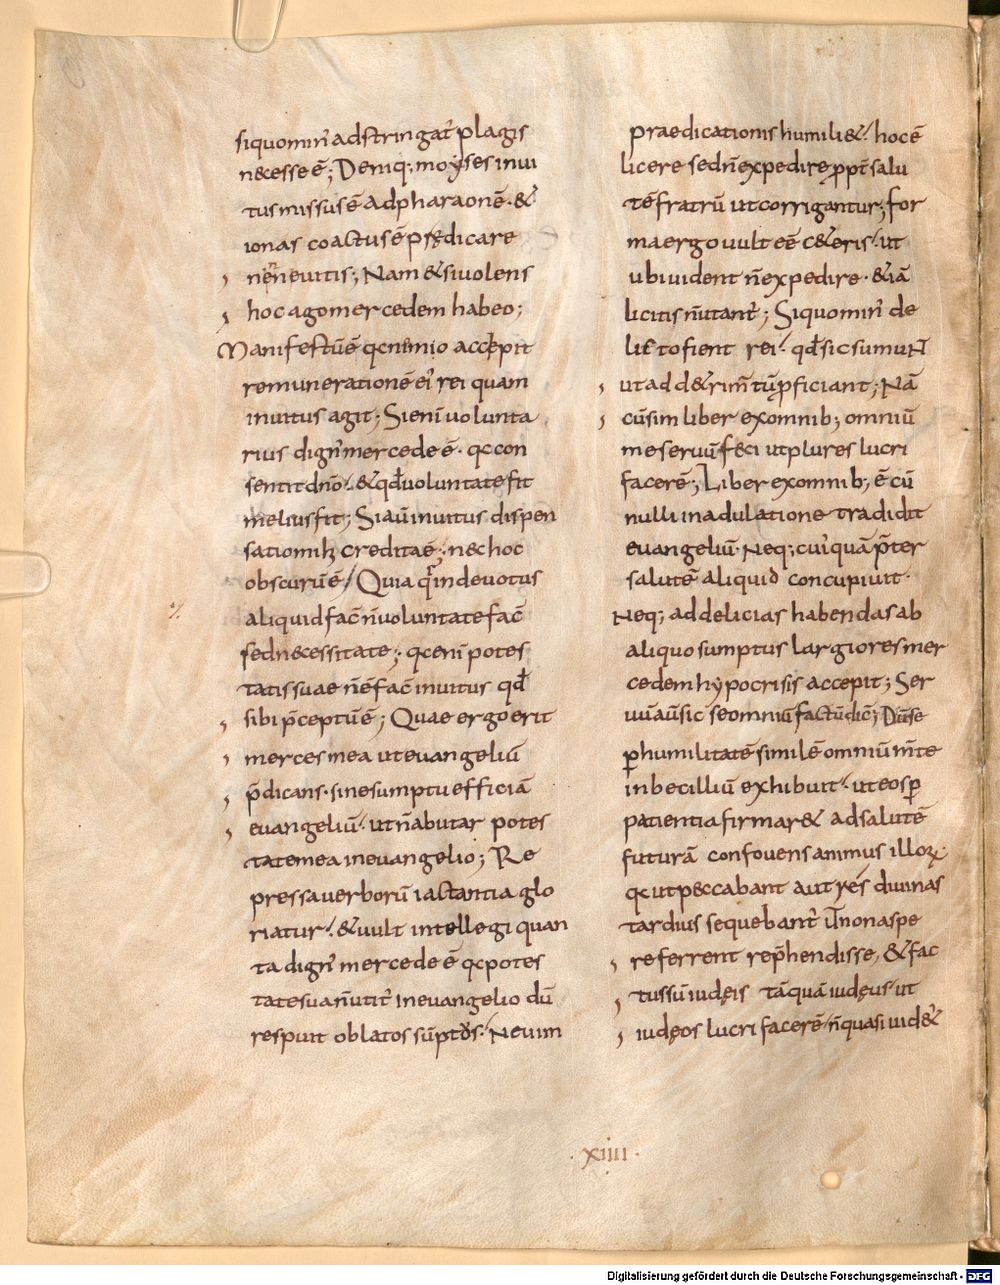 siquomin᾽ adstringat᾽ plagis
necesse ē; Deniq; moyses inui
tus missus ē ad pharaonē· &
ionas coactus ē prędicare
nineuitis; Nam & si uolens
hoc ago mercedem habeo;
Manifestū ē qc nimio accepit
remunerationē ei᾽ rei quam
inuitus agit; Si eni uolunta
rius dign᾽ mercede ē· qc con
sentit dn̄o· & qđ uoluntate fit
melius fit; Si aū inuitus dispen
satio mihi credita ē; nec hoc
obscurū ē/ Quia q indeuotus
aliquid fac̄ n̄ uoluntate fac̄
sed necessitate; qc eni potes
tatis suae n̄ ē fac̄ inuitus qđ
sibi p̄ceptū ē; Quae ergo erit
merces mea ut euangeliū
p̄dicans· sine sumptu efficiā
euangeliū· ut n̄ abutar potes
tate mea in euangelio; Re
pressa uerborū iactantia glo
riatur· & uult intellegi quan
ta dign᾽ mercede ē qc potes
tate sua n̄ utit᾽ in euangelio dū
respuit oblatos sūptos· Ne uim
praedicationis humili&· hoc ē
licere sed n̄ expedire ꝓpt᾽ salu
tē fratrū ut corrigantur; for
ma ergo uult eē c&eris· ut
ubi uident n̄ expedire· & iā
licitis n̄ utant᾽; Siquomin᾽ de
licto fient rei· qđ sic sumunt
ut ad d&rim̄tū ꝓficiant; Nā
cū sim liber ex omnib; omniū
me seruū feci ut plures lucri
facerē; Liber ex omnib; ē cū
nulli in adulatione tradidit
euangeliū· Neq; cui᾽quā p̄ter
salutē aliquid concupiuit·
Neq; ad delicias habendas ab
aliquo sumptus largiores mer
cedem hypocrisis accepit; Ser
uū aū sic se omniū factū dic̄; Dū se
ꝑ humilitatē similē omniū m̄te
inbecilliū exhibuit· ut eos ꝑ
patientia firmar& ad salutē
futurā confouens animus illoꝝ·
qc ut peccabant aut res diuinas
tardius sequebant᾽ ut non aspe
re ferrent rep̄hendisse, & fac
tus sū iudęis tāquā iudęus· ut
iudęos lucri facerē· n̄ quasi iud&
·xiiii·
Digitalisierung gefördert durch die Deutsche Forschungsgemeinschaft - DFG